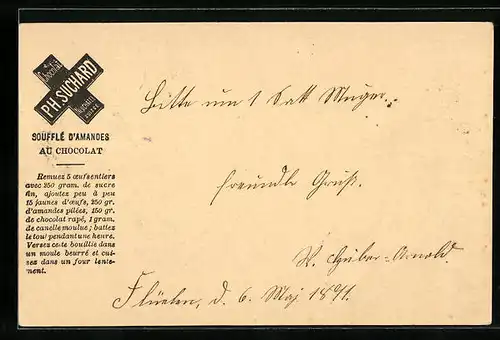 Chocolat
PH. SUCHARD
Neuchâtel
SUISSE
SOUFFLÉ D'AMANDES
AU CHOCOLAT
Remuez 5 œufs entiers
avec 250 gram. de sucre
fin, ajoutez peu à peu
15 jaunes d'œufs, 250 gr.
d'amandes pilées, 150 gr.
de chocolat rapé, 1 gram.
de canelle moulue; battez
le tout pendant une heure.
Versez cette bouillie dans
un moule beurré et cui-
sez dans un four lente-
ment.
Bitte um 1 Satt
freundl. Gruß.
Huber-Arnold.
Flüelen, d. 6. Mai 1891.